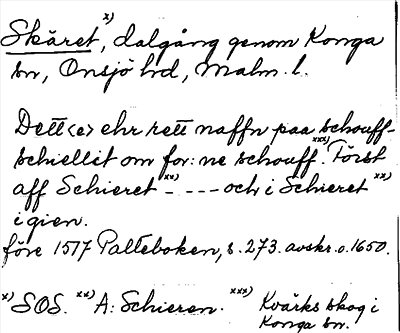 Skäret,ˣ⁾ dalgång genom Konga
sn, Onsjö hd, Malm. l.
Dett<e> ehr rett naffn paa schouff-
schiellit om for: ne schouff.ˣˣˣ⁾ Först
aff Schieretˣˣ⁾ - - - - och i Schieretˣˣ⁾
igien.
före 1577 Palteboken, s. 273. avskr. o. 1650.
ˣ⁾ SOS. ˣˣ⁾ A: Schieren. ˣˣˣ⁾ Kvärks skog i
Konga sn.